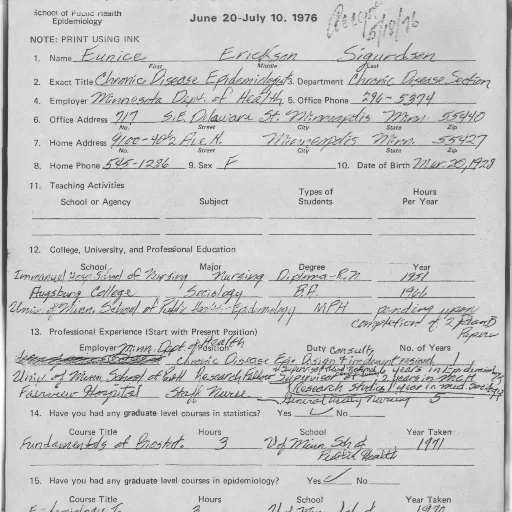 School of Public Health
Epidemiology
June 20-July 10, 1976
5/18/76
NOTE: PRINT USING INK
1. Name Eunice Erickson Sigurdsen
First Middle Last
2. Exact Title Chronic Disease Epidemiologist 3. Department Chronic Disease Section
4. Employer Minnesota Dept. of Health 5. Office Phone 296-5374
6. Office Address 717 S.E. Delaware St. Minneapolis Minn. 55440
No. Street City State Zip
7. Home Address 9100-40½ Ave. N. Minneapolis Minn. 55427
No. Street City State Zip
8. Home Phone 545-1286 9. Sex F 10. Date of Birth Mar. 20, 1928
11. Teaching Activities
School or Agency Subject Types of Students Hours Per Year
12. College, University, and Professional Education
School Major Degree Year
Immanuel Hosp. School of Nursing Nursing Diploma-R.N 1951
Augsburg College Sociology B.A. 1966
Univ. of Minn. School of Public Epidemiology MPH pending upon
completion of 2 Plan B
Papers
13. Professional Experience (Start with Present Position)
Employer Position Duty No. of Years
Minn. Dept of Health Chronic Disease Epi Design & implement Consult 1
Univ. of Minn. School of Publ. Research Fellow Supervisor years in Epidemiology
Research Studies 1 year in med. Sociology
Fairview Hospital Staff Nurse General Duty Nursing 5
14. Have you had any graduate level courses in statistics? Yes ✓ No
Course Title Hours School Year Taken
Fundamentals of Biostat. 3 U of Minn Sch of 1971
Public Health
15. Have you had any graduate level courses in epidemiology? Yes ✓ No
Course Title Hours School Year Taken
Epidemiology I 3 U of Minn Sch of 1970